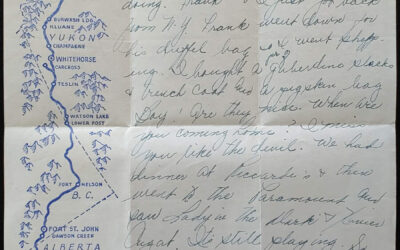 BURWASH LDG.
KLUANE
YUKON
CHAMPAGNE
WHITEHORSE
CARCROSS
TESLIN
WATSON LAKE
LOWER POST
FORT NELSON
B.C.
FORT ST. JOHN
DAWSON CREEK
ALBERTA
doing. Frank & I just got back
from N.Y. Frank went down for
his duffel bag so I went shopp-
ing. I bought a Gabardine slacks
& trench coat and a pigskin bag
Boy. Are they nice. When are
you coming home? I miss
you like the devil. We had
dinner at & then
went to the Paramount and
saw Lady in the Dark &
Cugat. Its still playing.